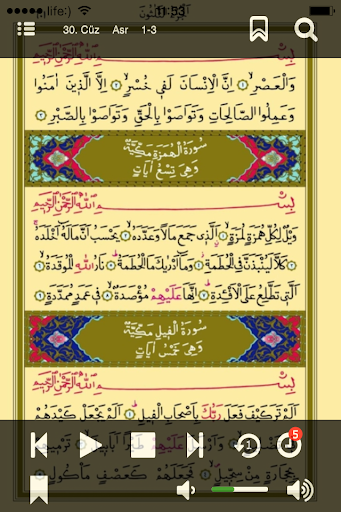 life:) 11:53
30. Cüz Asr 1-3
بِسْــــمِ اللّٰهِ الرَّحْمٰنِ الرَّحِيمِ
وَالْعَصْرِۙ ﴿١﴾ اِنَّ الْاِنْسَانَ لَفٖى خُسْرٍۙ ﴿٢﴾ اِلَّا الَّذٖينَ اٰمَنُوا
وَعَمِلُوا الصَّالِحَاتِ وَتَوَاصَوْا بِالْحَقِّ وَتَوَاصَوْا بِالصَّبْرِ ﴿٣﴾
سُورَةُ الْهُمَزَةِ مَكِّيَّةٌ
وَهِىَ تِسْعُ اٰيَاتٍ
بِسْــــمِ اللّٰهِ الرَّحْمٰنِ الرَّحِيمِ
وَيْلٌ لِكُلِّ هُمَزَةٍ لُمَزَةٍۙ ﴿١﴾ اَلَّذٖى جَمَعَ مَالًا وَعَدَّدَهُۙ ﴿٢﴾ يَحْسَبُ اَنَّ مَالَهُٓ اَخْلَدَهُۚ
﴿٣﴾ كَلَّا لَيُنْبَذَنَّ فِى الْحُطَمَةِۘ ﴿٤﴾ وَمَٓا اَدْرٰيكَ مَا الْحُطَمَةُۜ ﴿٥﴾ نَارُ اللّٰهِ الْمُوقَدَةُۙ ﴿٦﴾
اَلَّتٖى تَطَّلِعُ عَلَى الْاَفْـِٔدَةِۜ ﴿٧﴾ اِنَّهَا عَلَيْهِمْ مُؤْصَدَةٌۙ ﴿٨﴾ فٖى عَمَدٍ مُمَدَّدَةٍ ﴿٩﴾
سُورَةُ الْفٖيلِ مَكِّيَّةٌ
وَهِىَ خَمْسُ اٰيَاتٍ
بِسْــــمِ اللّٰهِ الرَّحْمٰنِ الرَّحِيمِ
اَلَمْ تَرَ كَيْفَ فَعَلَ رَبُّكَ بِاَصْحَابِ الْفٖيلِۜ ﴿١﴾ اَلَمْ يَجْعَلْ كَيْدَهُمْ
عَلَيْهِمْ طَيْرًا تَرْمٖيهِمْ
1 5
بِحِجَارَةٍ مِنْ سِجّٖيلٍۙ ﴿٤﴾ فَجَعَلَهُمْ كَعَصْفٍ مَأْكُولٍ ﴿٥﴾